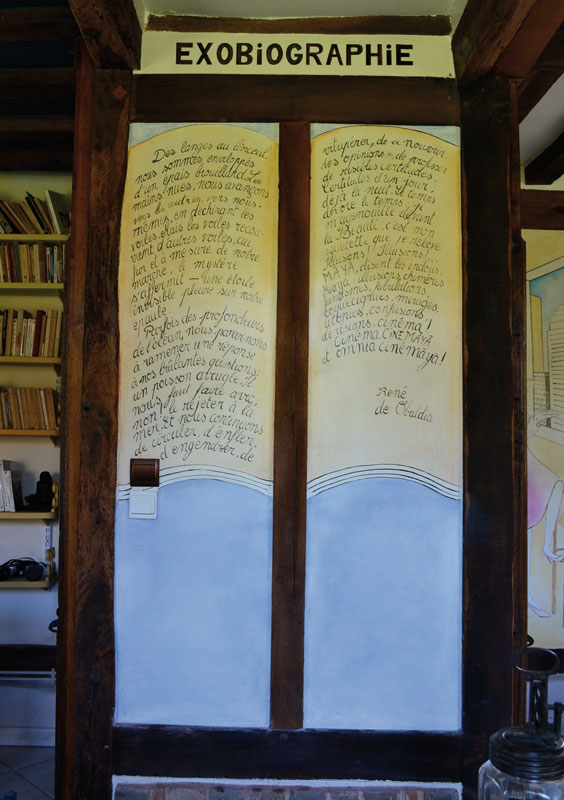 EXOBiOGRAPHiE
Des langes au linceul
nous sommes enveloppés
d'un épais brouillard. Les
mains nues, nous avançons
vers les autres, vers nous-
mêmes, en déchirant les
voiles, mais les voiles recou-
vrent d'autres voiles, au
fur et à mesure de notre
marche, le mystère
s'affermit – une étoile
invisible pleure sur notre
épaule.
Parfois des profondeurs
de l'océan, nous parvenons
à ramener une réponse
à nos brûlantes questions:
un poisson aveugle. Il
nous faut faire avec,
non le rejeter à la
mer. Et nous continuons
de circuler, d'enfler,
d'engendrer, de
vitupérer, de « nourrir
des opinions », de professer
de risibles certitudes.
Certitudes d'un jour,
déjà la nuit et le temps
dévore le temps.
M'agenouille devant
la Beauté, c'est mon
squelette que je relève.
Illusions! Illusions!...
MAYA, disent les indous.
Maya: illusions, chimères
fantasmes, fabulations,
coquecigrues, mirages
leurres, confusions
dérisions, cinéma!
Cinéma CINÉ MAYA
et omnia cinémaya!
René
de Obaldia